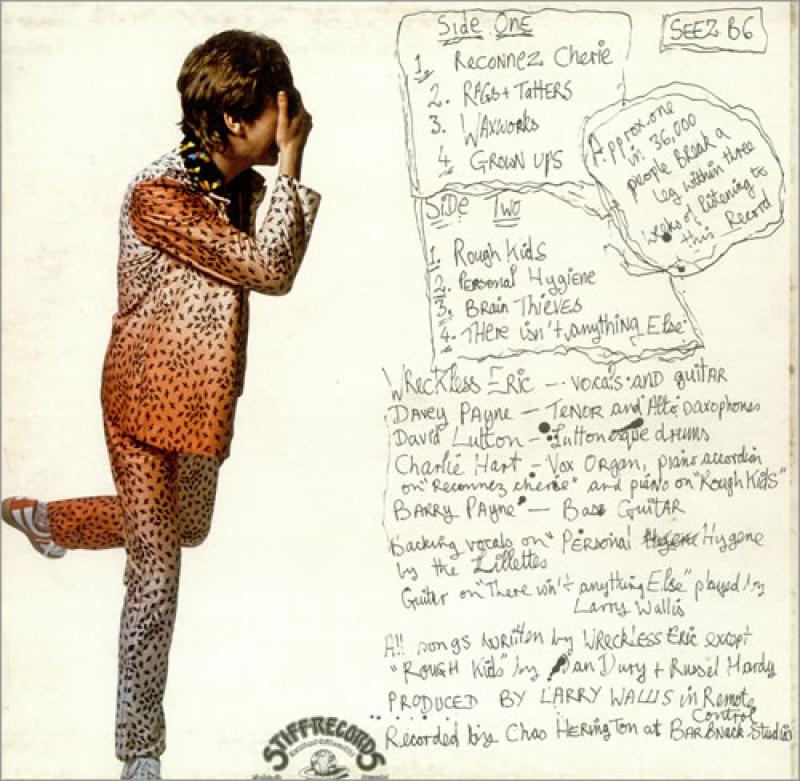 Side One
SEEZ B6
1. Reconnez Cherie
2. RAGS + TATTERS
3. WAXWORKS
4. GROWN UPS
Approx. one
in 36,000
people Break a
Leg within three
weeks of listening to
this Record
Side Two
1. Rough Kids
2. Personal Hygiene
3. Brain Thieves
4. THere isn't anything Else
WReckless ERic — vocals and guitAR
Davey Payne — TENOR and Alto Saxophones
David Lutton — Luttonesque drums
Charlie Hart — Vox Organ, piano accordion
on "Reconnez cherie" and piano on "Rough Kids"
BARRY PAYNE — Bass GuitAR
Backing vocals on "PERsonal Hygene
by the Lillettes
Guitar on "There isn't anything Else" played by
Larry Wallis
All songs written by WReckless Eric except
"ROUGH Kids" by Ian Dury + Russel Hardy
PRODUCED BY LARRY WALLIS in Remote
Control
Recorded by Chas HERingTon at BARBNack Studios
STIFF RECORDS